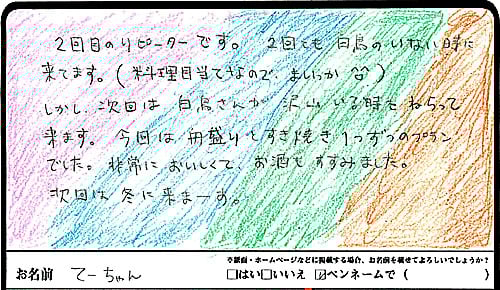 2回目のリピーターです。 2回とも白鳥のいない時に
来てます。(料理目当てなので、まいっか ^^)
しかし、次回は白鳥さんが沢山いる時をねらって
来ます。今回は舟盛りとすき焼き1つずつのプラン
でした。非常においしくて、お酒もすすみました。
次回は冬に来まーす。
※紙面・ホームページなどに掲載する場合、お名前を載せてよろしいでしょうか?
お名前 てーちゃん □はい□いいえ ☑ペンネームで( )